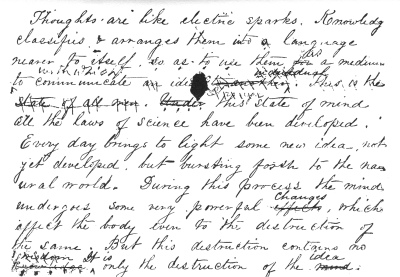 Thoughts are like electric sparks. Knowledg
classifies & arranges them into a language
nearer to itself. so as to use them for as a medium
to communicate an idea This is the
State of all men. Under this State of mind
all the laws of science have been developed.
Every day brings to light some new idea, not
yet developed, but bursting forth to the na
ural world. During this process the mind
undergoes some very powerful effects, changes which
affect the body even to the destruction of
the same. But this destruction contains no
wisdom It is only the destruction of the mind. idea